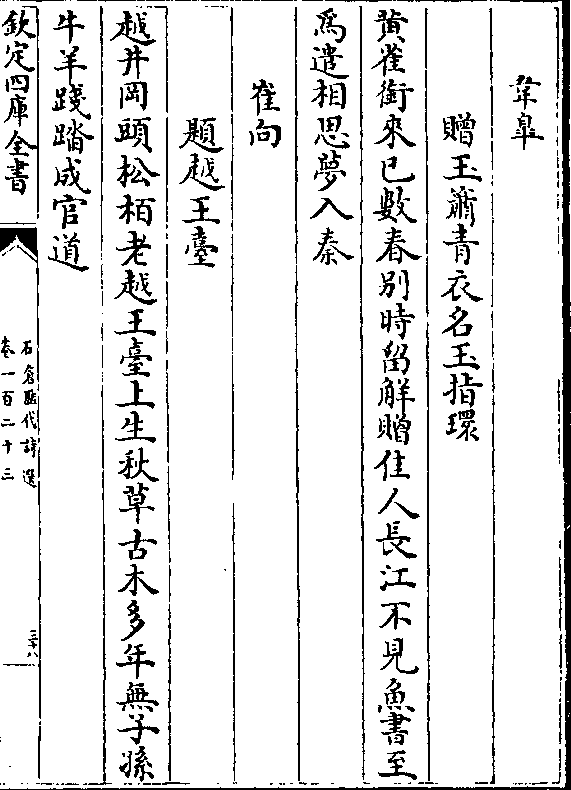 韋臯
贈王簫青衣名玉指環
黄雀銜來已數春别時留解贈佳人長江不見魚書至
為遣相思夢入秦
崔向
題越王臺
越井岡頭松栢老越王臺上生秋草古木多年無子孫
牛羊踐踏成官道
欽定四庫全書
石倉歴代詩選
卷一百二十三
三十八